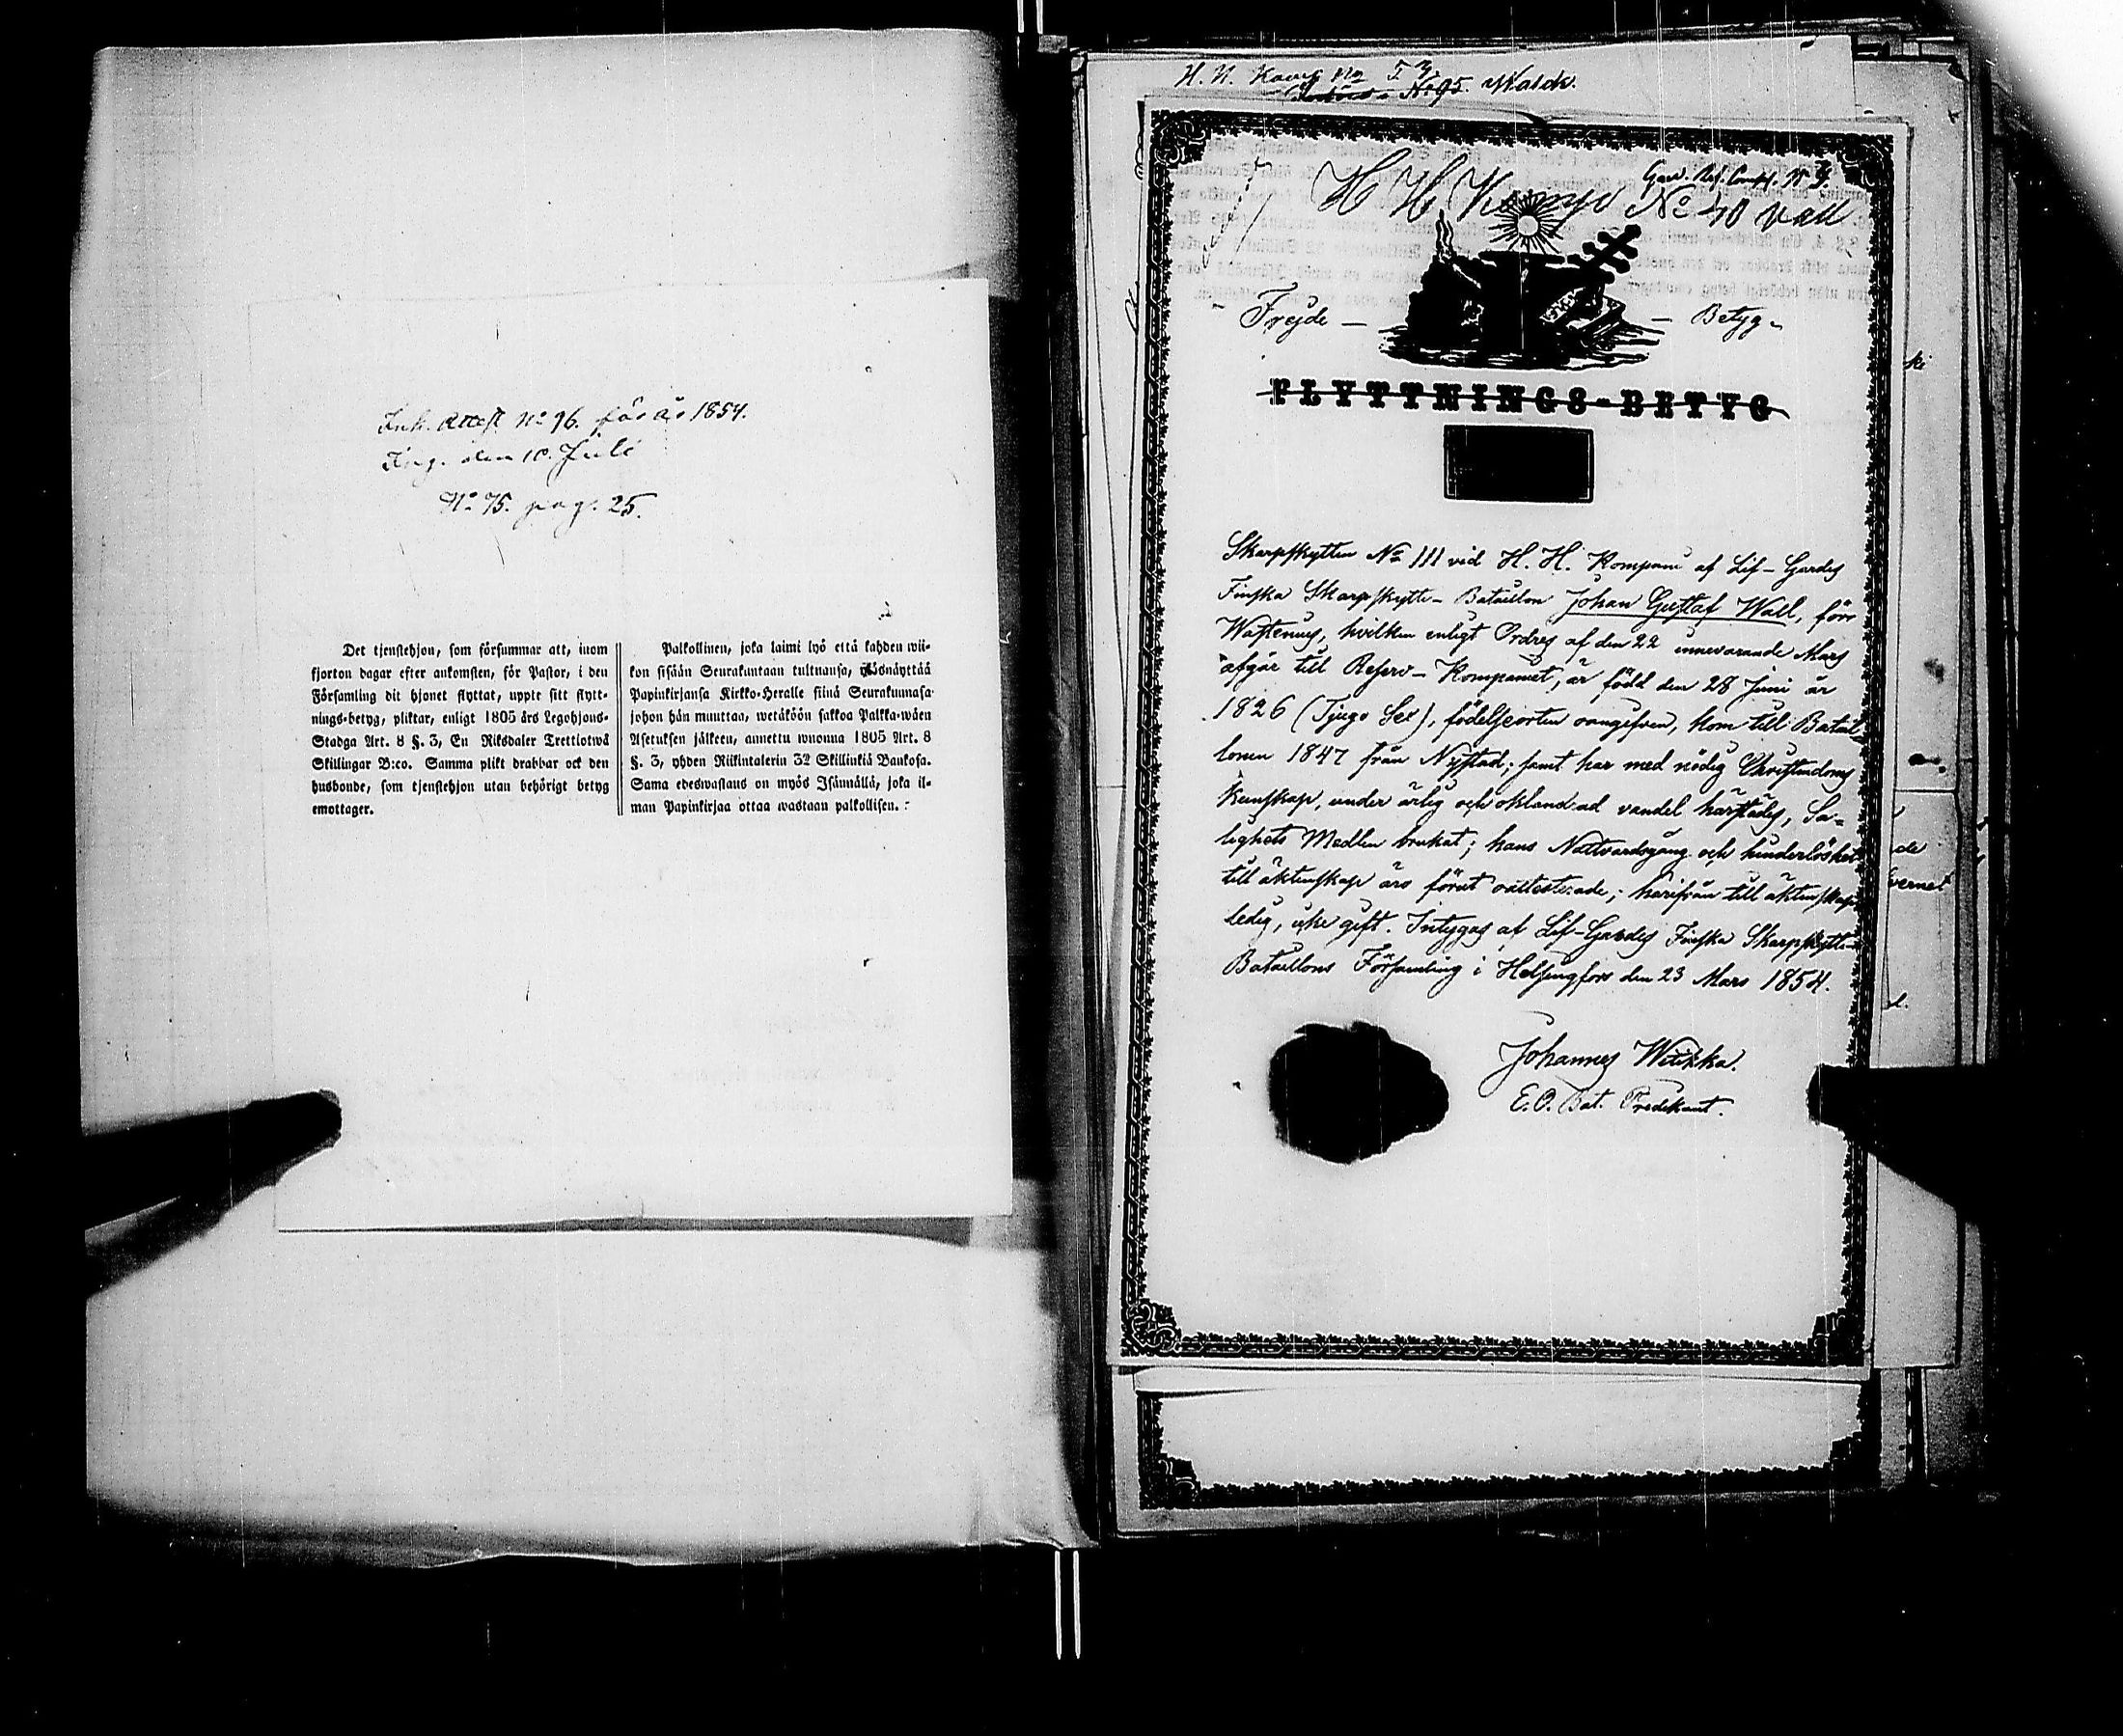 Ink. Attest No 96. för år 1854.
Ing. den 10. Juli
No 75. pag. 25.
Det tjenstehjon, som försummar att, inom
fjorton dagar efter ankomsten, för Pastor, i den
Församling dit hjonet flyttat, uppte sitt flytt-
nings-betyg, pliktar, enligt 1805 års Legohjons-
Stadga Art. 8 §. 3, En Riksdaler Trettiotwå
Skillingar B:co. Samma plikt drabbar ock den
husbonde, som tjenstehjon utan behörigt betyg
emottager.
Palkollinen, joka laimi lyö että kahden wii-
kon sisään Seurakuntaan tultuansa, ylösnäyttää
Papinkirjansa Kirkko-Heralle siinä Seurakunnasa
johon hän muuttaa, wetäköön sakkoa Palkka-wäen
Asetuksen jälkeen, annettu wuonna 1805 Art. 8
§. 3, yhden Riikintalerin 32 Skillinkiä Bankosa.
Sama edeswastaus on myös Isännällä, joka il-
man Papinkirjaa ottaa wastaan palkollisen.
H. H. Komp No 95. Walck.
H H Komp No 40 Wall
Frejde - Betyg
FLYTTNINGS-BETYG
Skarpskytten No 111 vid H. H. Kompani af Lif-Gardes
Finska Skarpskytte-Bataillon Johan Gustaf Wall, förr
Wastenius, hvilken enligt Ordres af den 22 innevarande Mars
afgår till Reserv-Kompaniet, är född den 28 Juni år
1826 (Tjugo Sex), födelseorten oangifven, kom till Batail-
lonen 1847 från Nystad; samt har med nödig Christendoms
Kunskap, under ärlig och oklandrad vandel härstädes, Sa-
lighets Medlen brukat; hans Nattvardsgång och hinderlöshet
till äktenskap äro förut oattesterade; härifrån till äktenskap
ledig, icke gift. Intygas af Lif-Gardes Finska Skarpskytte-
Bataillons Församling i Helsingfors den 23 Mars 1854.
Johannes Witikka.
E. O. Bat. Predikant.